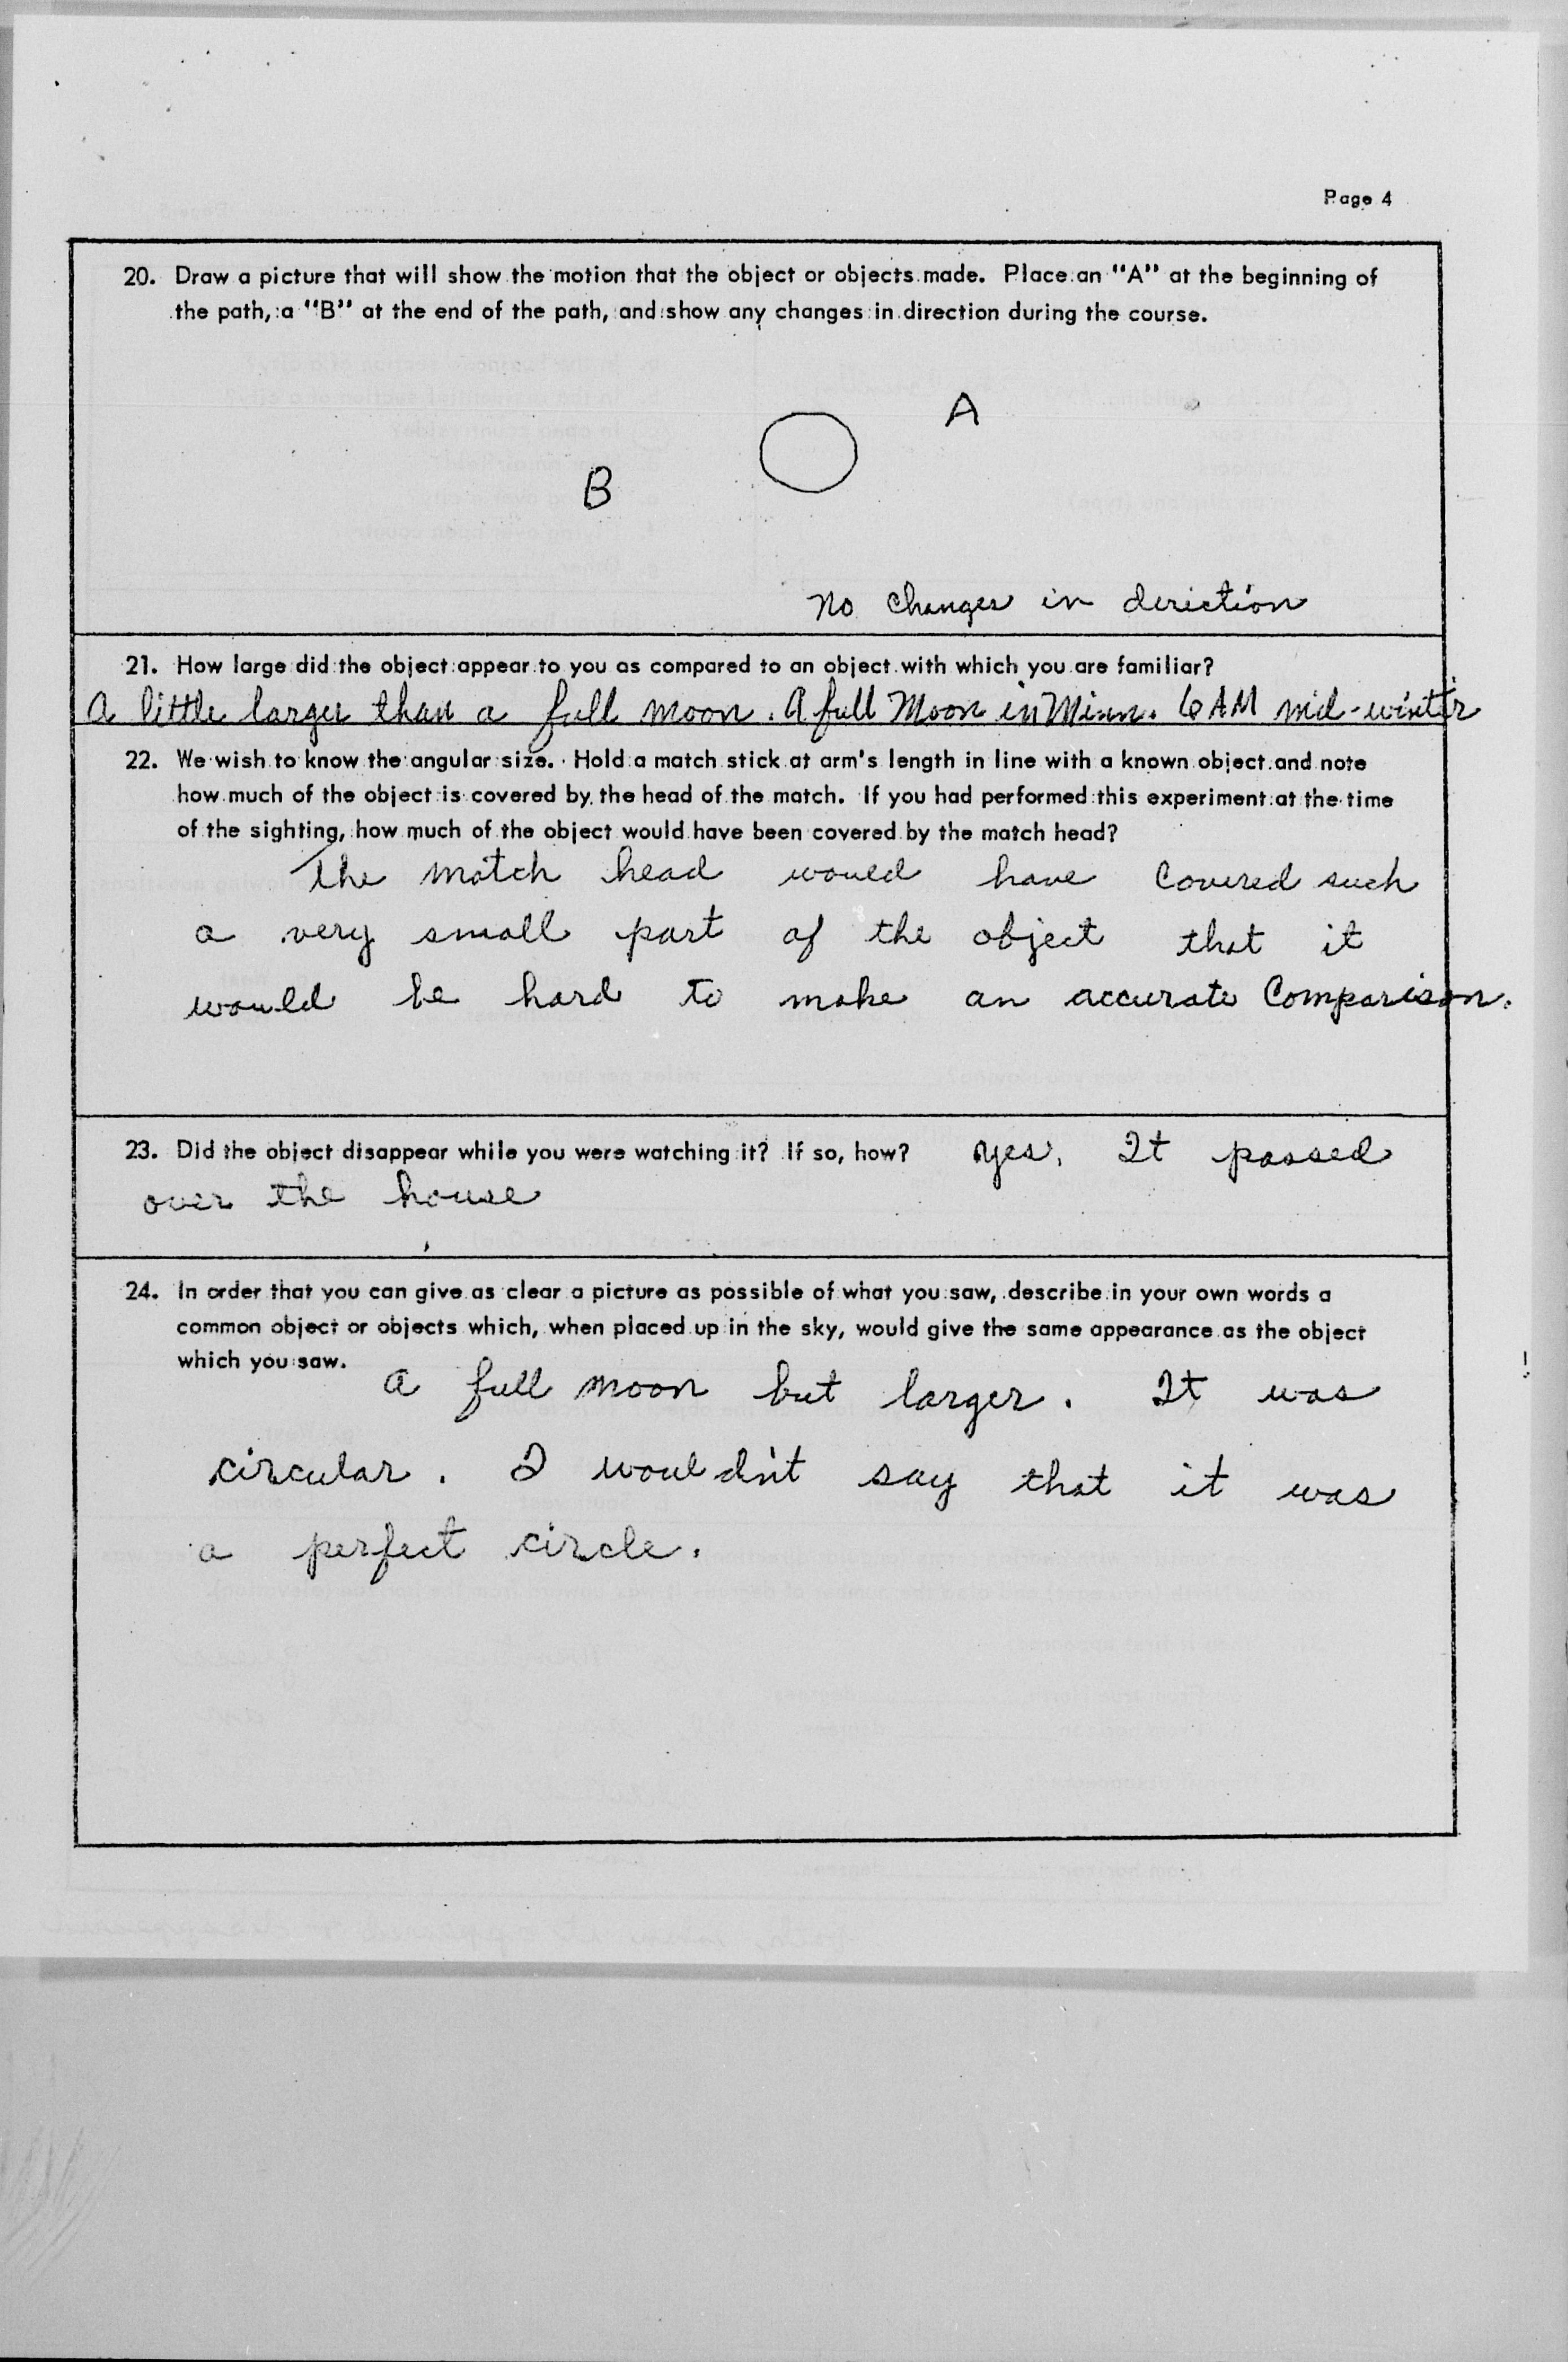 Page 4
20. Draw a picture that will show the motion that the object or objects made. Place an "A" at the beginning of
the path, a "B" at the end of the path, and show any changes in direction during the course.
A
B
No changes in deriction
21. How large did the object appear to you as compared to an object with which you are familiar?
A little larger than a full moon. A full Moon in Minn. 6 AM mid-winter
22. We wish to know the angular size. Hold a match stick at arm's length in line with a known object and note
how much of the object is covered by the head of the match. If you had performed this experiment at the time
of the sighting, how much of the object would have been covered by the match head?
The match head would have covered such
a very small part of the object that it
would be hard to make an accurate comparison.
23. Did the object disappear while you were watching it? If so, how? Yes. It passed
over the house
24. In order that you can give as clear a picture as possible of what you saw, describe in your own words a
common object or objects which, when placed up in the sky, would give the same appearance as the object
which you saw.
A full moon but larger. It was
circular. I wouldn't say that it was
a perfect circle.